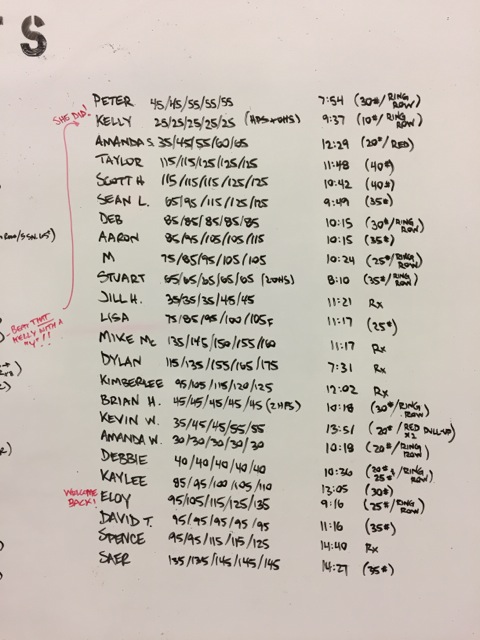 TS
PETER 45/45/55/55/55 7:54 (30#/RING ROW)
SHE DID!
KELLY 25/25/25/25/25 (HPS+OHS) 9:37 (10#/RING ROW)
AMANDA S. 35/45/55/60/65 12:29 (20#/RED)
TAYLOR 115/115/125/125/125 11:48 (40#)
SCOTT H 115/115/115/125/125 10:42 (40#)
SEAN L. 65/95/115/125/125 9:49 (35#)
DEB 85/85/85/85/85 10:15 (30#/RING ROW)
AARON 85/95/105/105/115 10:15 (35#)
M 75/85/95/105/105 10:24 (25#/RING ROW)
STUART 65/65/65/65/65 (2OHS) 8:10 (35#/RING ROW)
JILL H. 35/35/35/45/45 11:21 Rx
LISA 75/85/95/100/105F 11:17 (25#)
- BEAT THAT KELLY WITH A "Y"!!
MIKE M. 135/145/150/155/160 11:17 Rx
DYLAN 115/135/155/165/175 7:31 Rx
KIMBERLEE 95/105/115/120/125 12:02 Rx
BRIAN H. 45/45/45/45/45 (2HPS) 10:18 (30#/RING ROW)
KEVIN W. 35/45/45/55/55 13:51 (20#/RED X2 PULL-UP)
AMANDA W. 30/30/30/30/30 10:18 (20#/RING ROW)
DEBBIE 40/40/40/40/40 10:36 (20# 25#/RING ROW)
KAYLEE 85/95/100/105/110 13:05 (30#)
WELCOME BACK!
ELOY 95/105/115/125/135 9:16 (25#/RING ROW)
DAVID T. 95/95/95/95/95 11:16 (35#)
SPENCE 95/95/115/115/125 14:40 Rx
SAER 135/135/145/145/145 14:27 (35#)